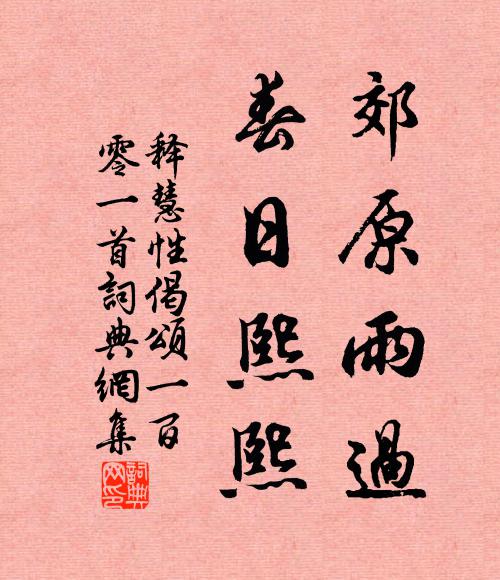 郊原雨過
春日熙熙
释慧性偈頌一百
零一首詞典網集
詞典
网印